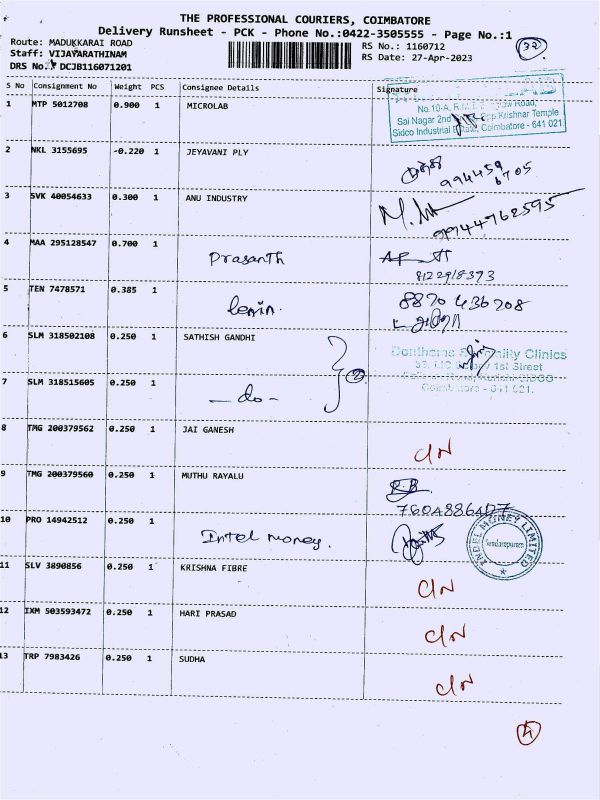 THE PROFESSIONAL COURIERS, COIMBATORE
Delivery Runsheet - PCK - Phone No.:0422-3505555 - Page No.:1
Route: MADUKKARAI ROAD
RS No.: 1160712
32
Staff: VIJAYARATHINAM
RS Date: 27-Apr-2023
DRS No. DCJB116071201
S No Consignment No Weight PCS Consignee Details Signature
1 MTP 5012708 0.900 1 MICROLAB
No.10-A, Road,
Sai Nagar 2nd Opp.Krishnar Temple
Sidco Industrial Estate, Coimbatore - 641 021.
2 NKL 3155695 -0.220 1 JEYAVANI PLY
994459
6705
3 SVK 40054633 0.300 1 ANU INDUSTRY
9944762595
4 MAA 295128547 0.700 1 Prasanth
8122918373
5 TEN 7478571 0.385 1 lenin.
8870 436708
6 SLM 318502108 0.250 1 SATHISH GANDHI
2
Clinics
1st Street
SIDCO
Coimbatore - 641 021.
7 SLM 318515605 0.250 1 - do -
8 TMG 200379562 0.250 1 JAI GANESH C/N
9 TMG 200379560 0.250 1 MUTHU RAYALU
R.B
10 PRO 14942512 0.250 1 Intel money.
INDEL MONEY LIMITED
Sundarapuram
11 SLV 3890856 0.250 1 KRISHNA FIBRE C/N
12 IXM 503593472 0.250 1 HARI PRASAD C/N
13 TRP 7983426 0.250 1 SUDHA C/N
4